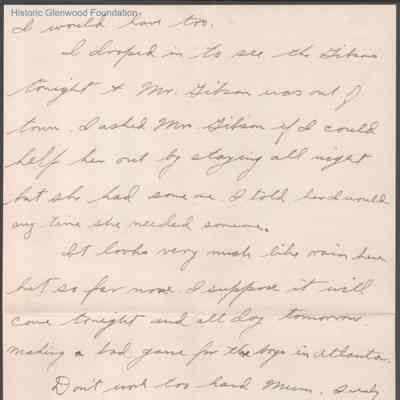 Historic Glenwood Foundation
I would love to.
I droped in to see the Gibsons
tonight & Mr. Gibson was out of
town. I asked Mrs Gibson if I could
help her out by staying all night
but she had some one. I told her I would
any time she needed someone.
It looks very much like rain here
but so far none. I suppose it will
come tonight and all day tomorrow.
making a bad game for the boys in Atlanta.
Don't work too hard Mum.